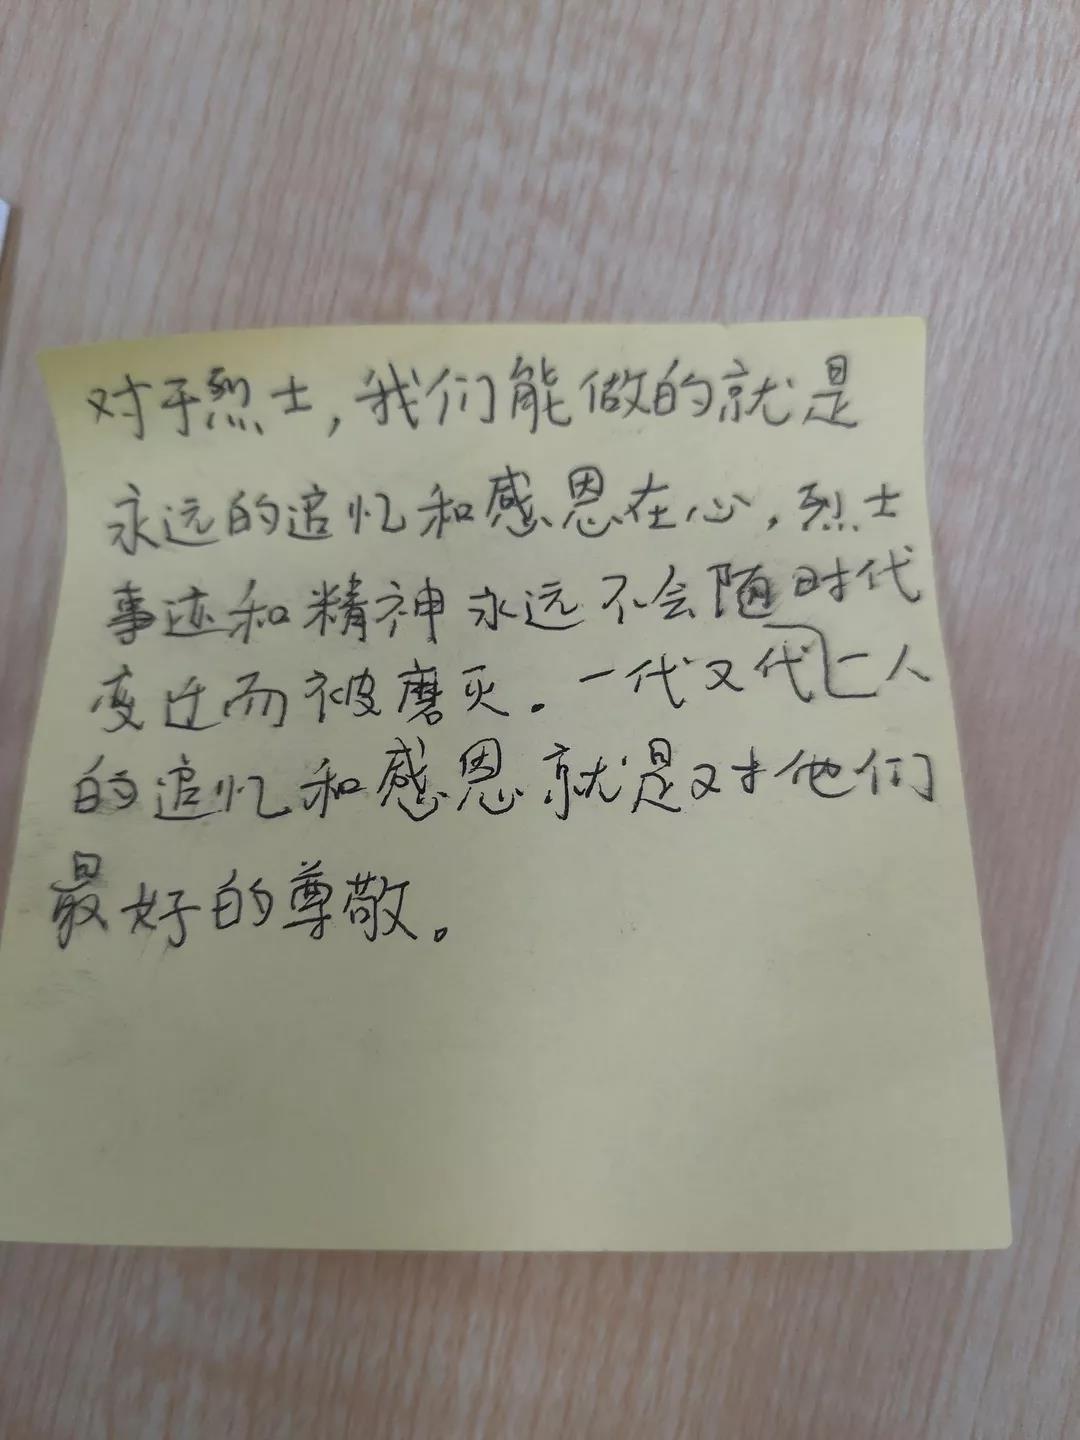 对于烈士，我们能做的就是
永远的追忆和感恩在心，烈士
事迹和精神永远不会随时代
变迁而被磨灭。一代又一代人
的追忆和感恩就是对他们
最好的尊敬。